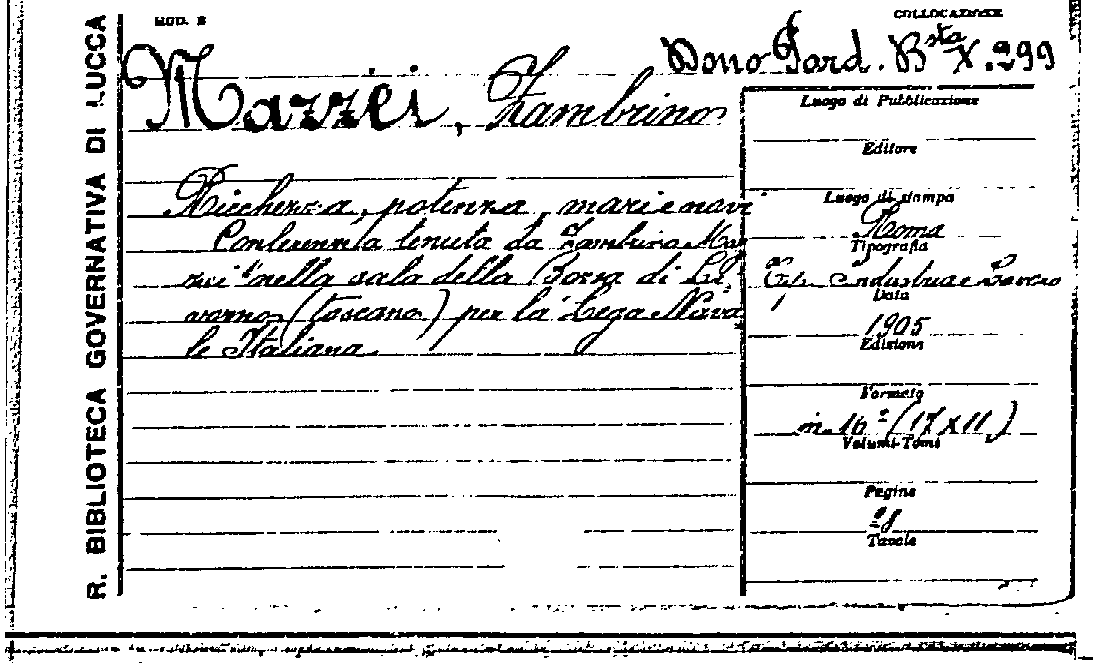 R. BIBLIOTECA GOVERNATIVA DI LUCCA
MOD. 2
COLLOCAZIONE
Dono Pard. Bsta X. 299
Mazzei, Zambrino
Ricchezza, potenza, mari e navi
Conferenza tenuta da Zambrino Maz
zei nella sala della Borsa di Li
vorno (toscano) per la Lega Nava
le Italiana.
Luogo di Pubblicazione
Editore
Luogo di stampa
Roma
Tipografia
Tip. Industria e Lavoro
Data
1905
Edizione
Formato
in 16º (17x11)
Volumi-Tomi
Pagine
28
Tavole